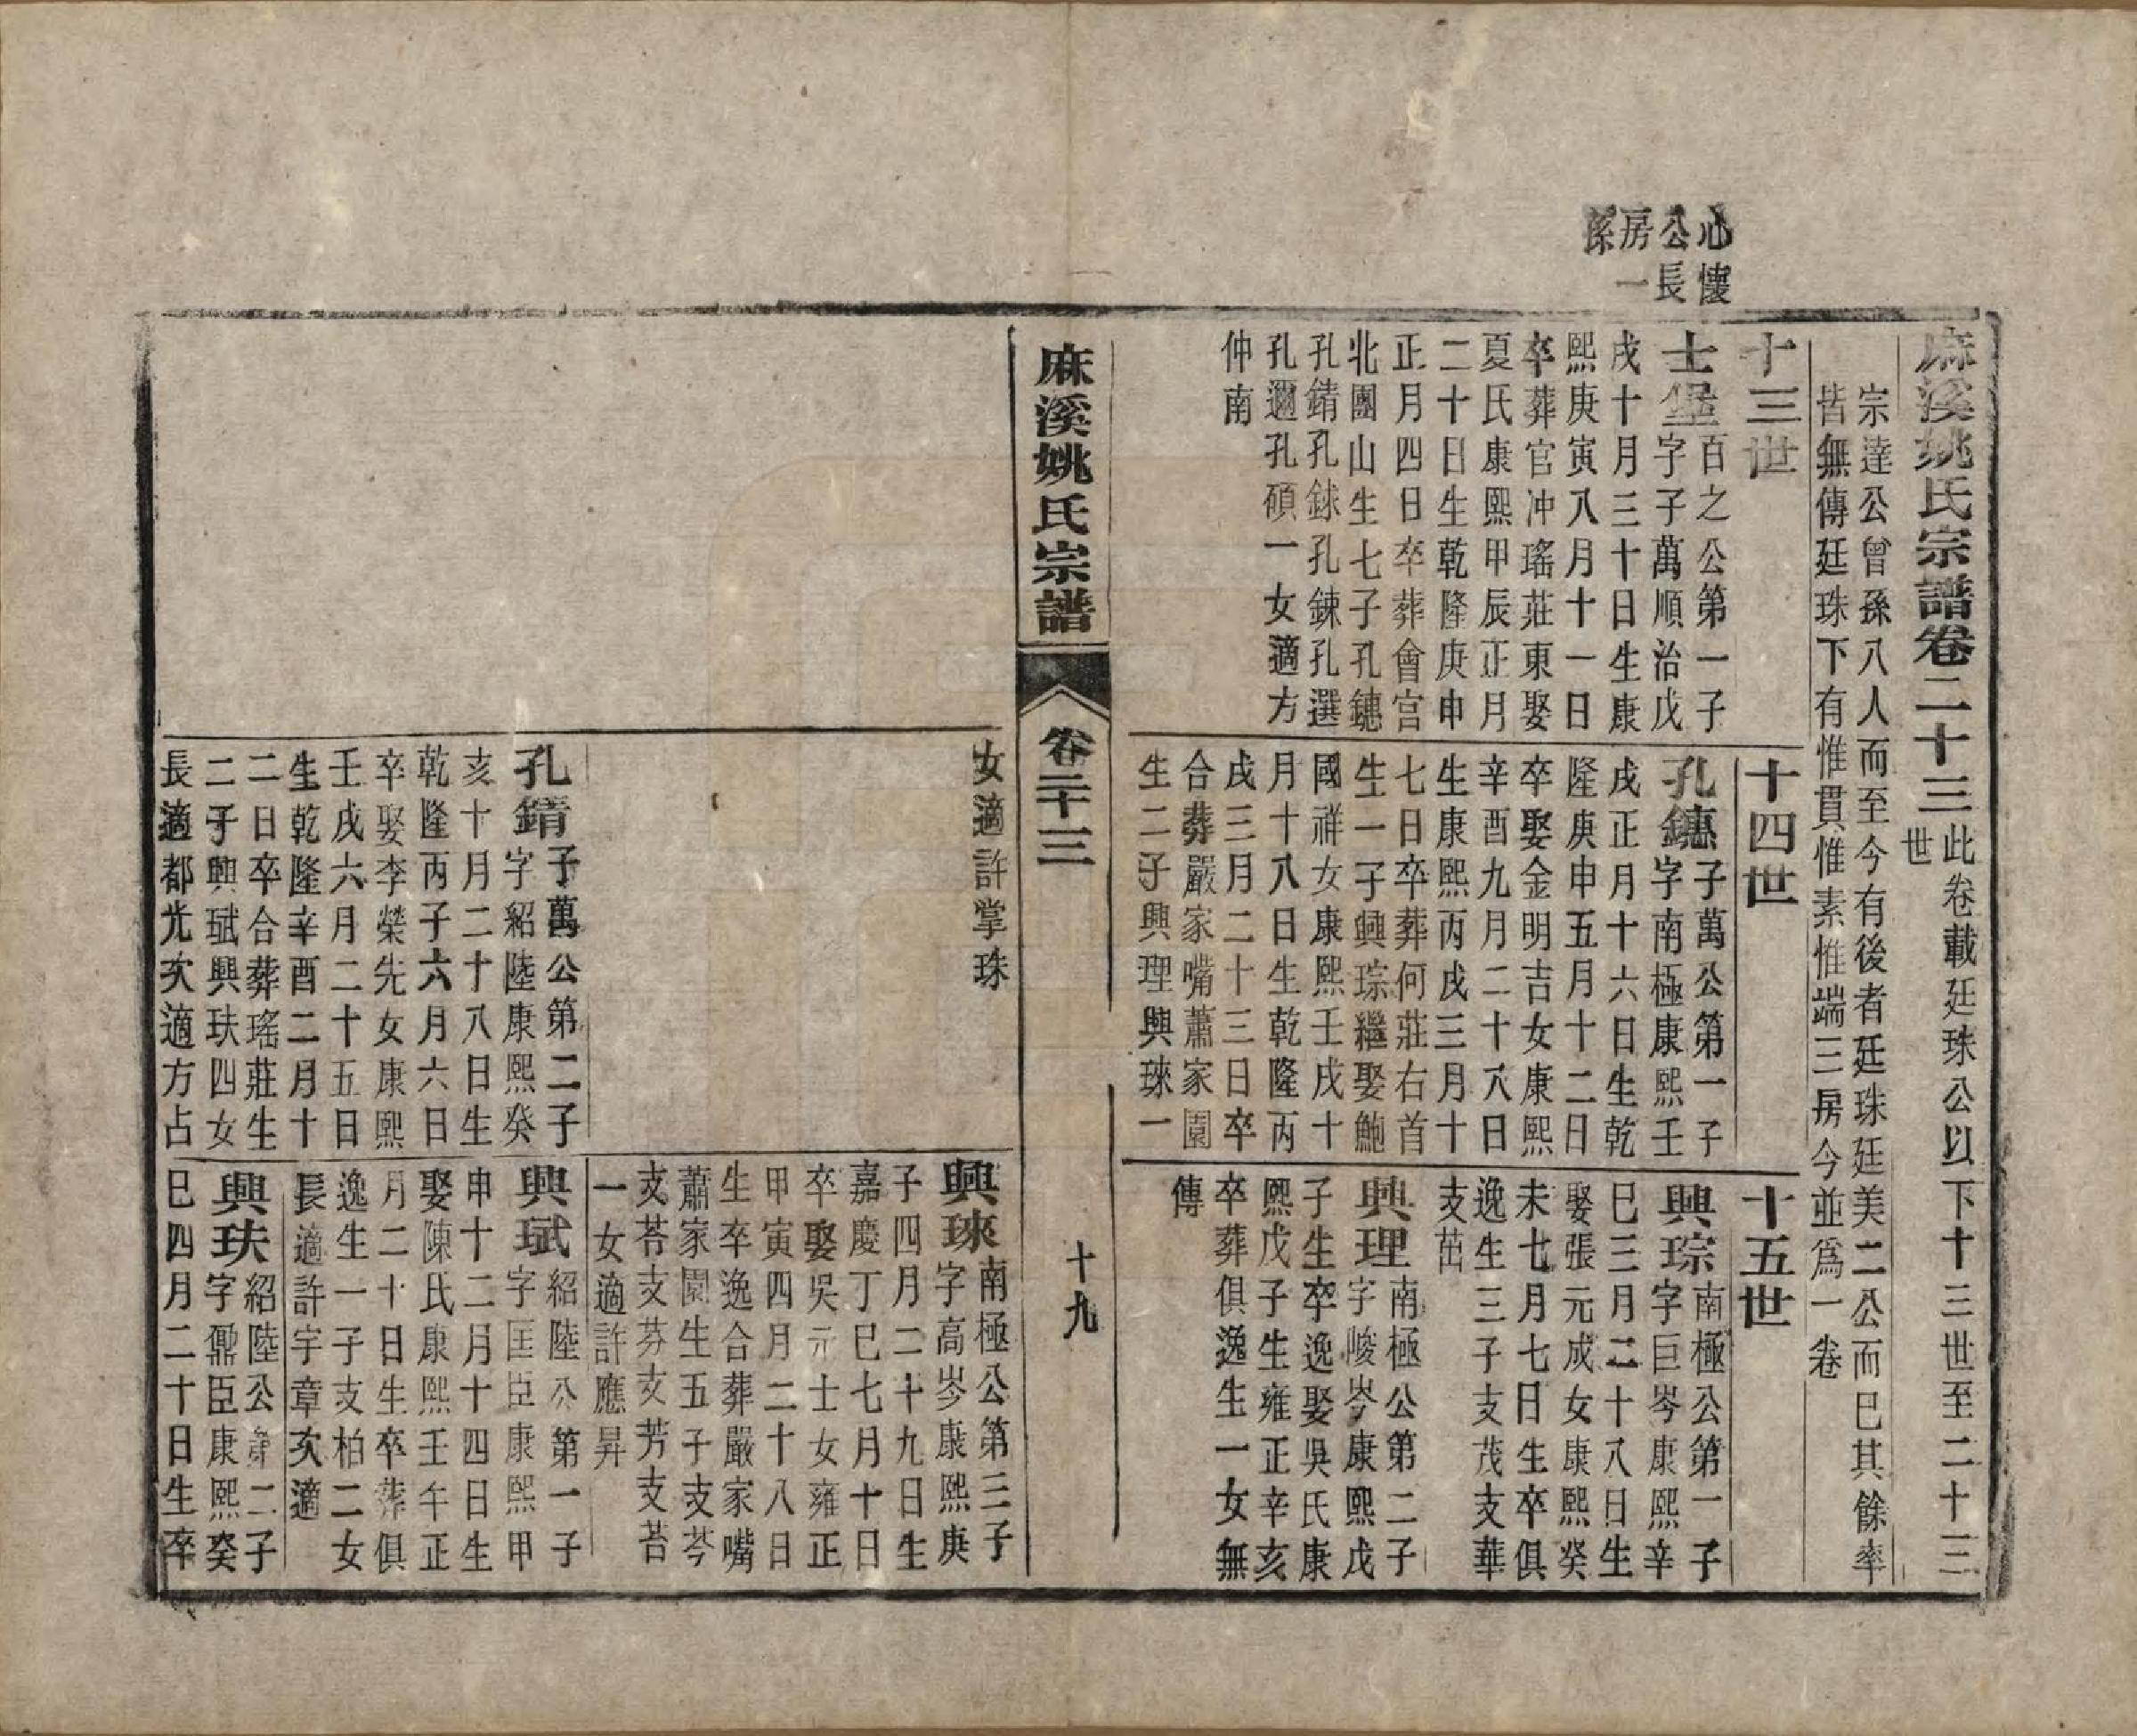 心懷
公長
房一
孫
麻溪姚氏宗譜卷二十三此卷載廷珠公以下十三世至二十三
世
宗達公曾孫八人而至今有後者廷珠廷美二公而已其餘率
皆無傳廷珠下有惟貫惟素惟端三房今並爲一卷
十三世
士堡百之公第一子
字子萬順治戊
戌十月三十日生康
熙庚寅八月十一日
卒葬官冲瑤莊東娶
夏氏康熙甲辰正月
二十日生乾隆庚申
正月四日卒葬會宫
北團山生七子孔鏸
孔錆孔銶孔鍊孔選
孔邇孔碩一女適方
仲南
十四世
孔鏸子萬公第一子
字南極康熙壬
戌正月十六日生乾
隆庚申五月十二日
卒娶金明吉女康熙
辛酉九月二十八日
生康熙丙戌三月十
七日卒葬何莊右首
生一子興琮繼娶鮑
國祥女康熙壬戌十
月十八日生乾隆丙
戌三月二十三日卒
合葬嚴家嘴蕭家園
生二子興理興琜一
十五世
興琮南極公第一子
字巨岑康熙辛
巳三月二十八日生
娶張元成女康熙癸
未七月七日生卒俱
逸生三子支茂支華
支茁
興理南極公第二子
字峻岑康熙戊
子生卒逸娶吳氏康
熙戊子生雍正辛亥
卒葬俱逸生一女無
傳
麻溪姚氏宗譜
卷二十三
十九
女適許掌珠
孔錆子萬公第二子
字紹陸康熙癸
亥十月二十八日生
乾隆丙子六月六日
卒娶李榮先女康熙
壬戌六月二十五日
生乾隆辛酉二月十
二日卒合葬瑤莊生
二子興珷興玞四女
長適都光次適方占
興琜南極公第三子
字高岑康熙庚
子四月二十九日生
嘉慶丁巳七月十日
卒娶吳元士女雍正
甲寅四月二十八日
生卒逸合葬嚴家嘴
蕭家園生五子支芩
支荅支芬支芳支苔
一女適許應昇
興珷紹陸公第一子
字匡臣康熙甲
申十二月十四日生
娶陳氏康熙壬午正
月二十日生卒葬俱
逸生一子支柏二女
長適許宇章次適
興玞紹陸公第二子
字鼐臣康熙癸
巳四月二十日生卒